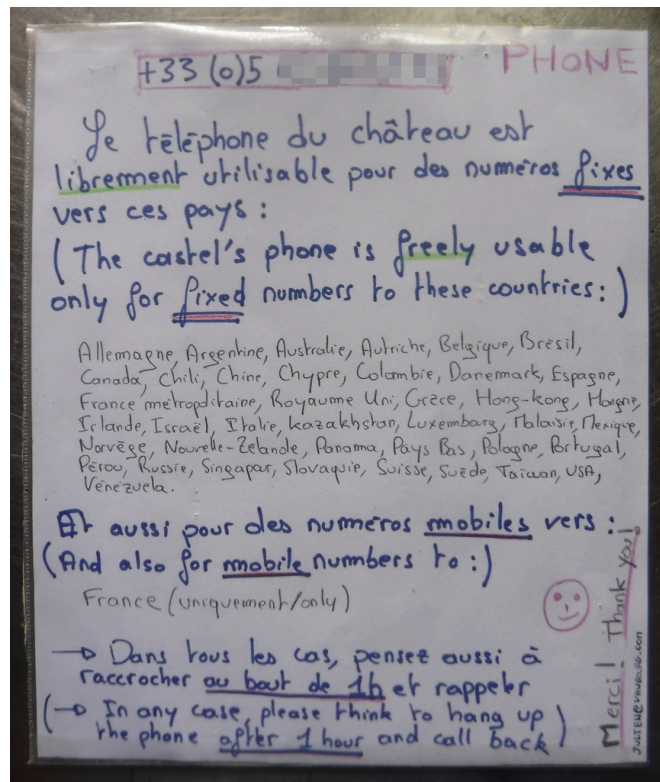 +33 (0)5
PHONE
Le téléphone du château est
librement utilisable pour des numéros fixes
vers ces pays :
(The castel's phone is freely usable
only for fixed numbers to these countries:)
Allemagne, Argentine, Australie, Autriche, Belgique, Brésil,
Canada, Chili, Chine, Chypre, Colombie, Danemark, Espagne,
France métropolitaine, Royaume Uni, Grèce, Hong-kong, Hongrie,
Irlande, Israël, Italie, Kazakhstan, Luxembourg, Malaisie, Mexique,
Norvège, Nouvelle-Zelande, Panama, Pays Bas, Pologne, Portugal,
Pérou, Russie, Singapar, Slovaquie, Suisse, Suède, Taiwan, USA,
Vénézuela.
Et aussi pour des numéros mobiles vers :
(And also for mobile numbers to :)
France (uniquement/only)
→ Dans tous les cas, pensez aussi à
raccrocher au bout de 1h et rappeler
(→ In any case, please think to hang up
the phone after 1 hour and call back)
Merci! Thank you!